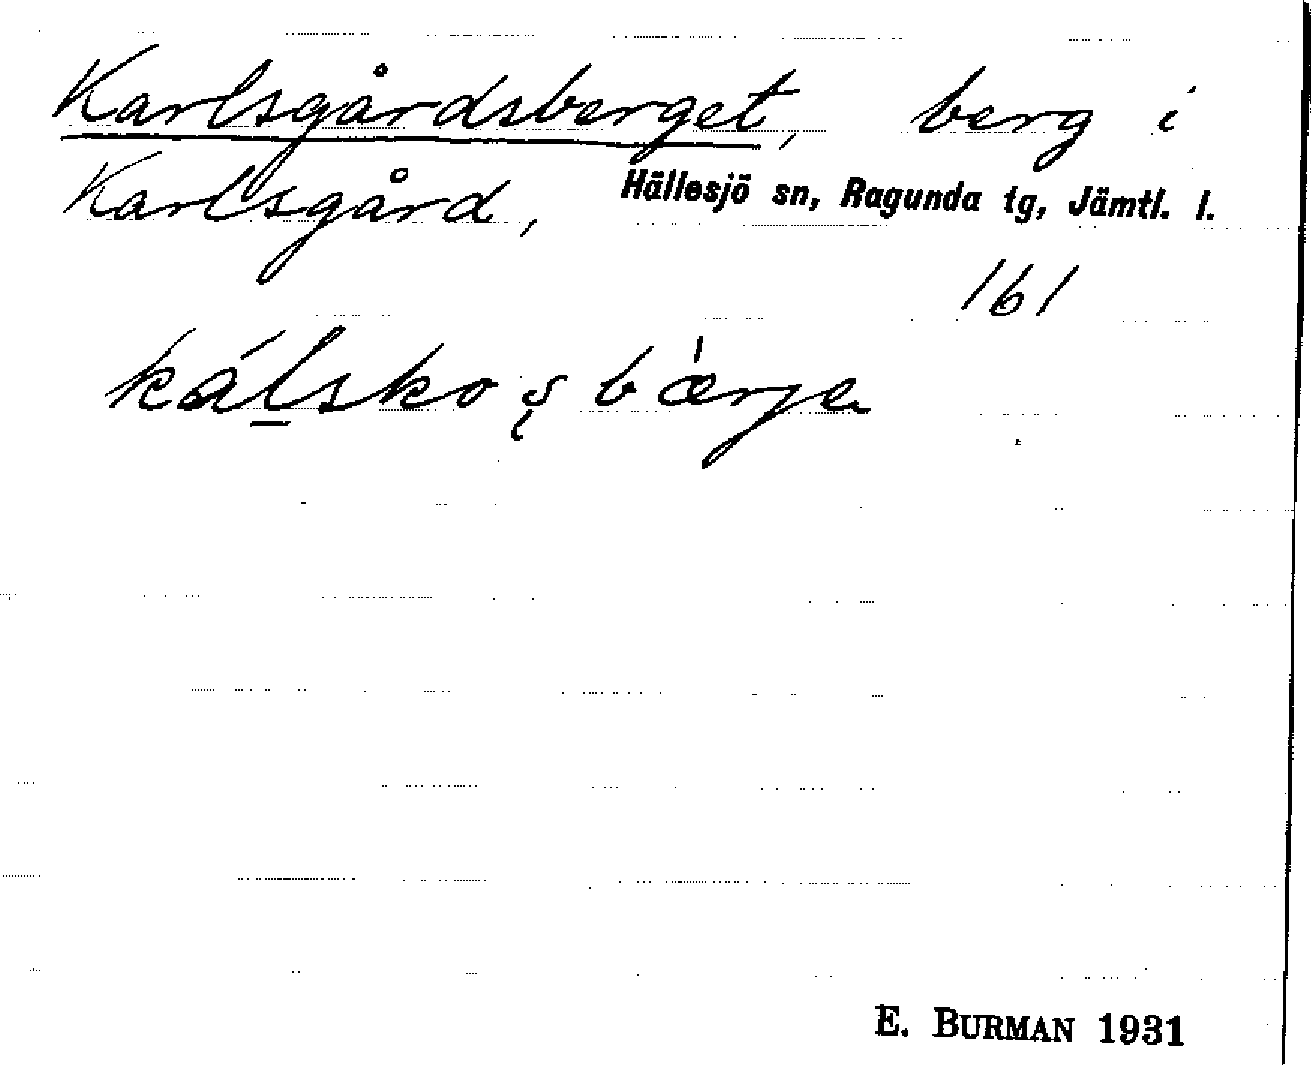 Karlsgårdsberget, berg i
Karlsgård, Hällesjö sn, Ragunda tg, Jämtl. l.
161
kálsko ʂ bǽrje
E. BURMAN 1931